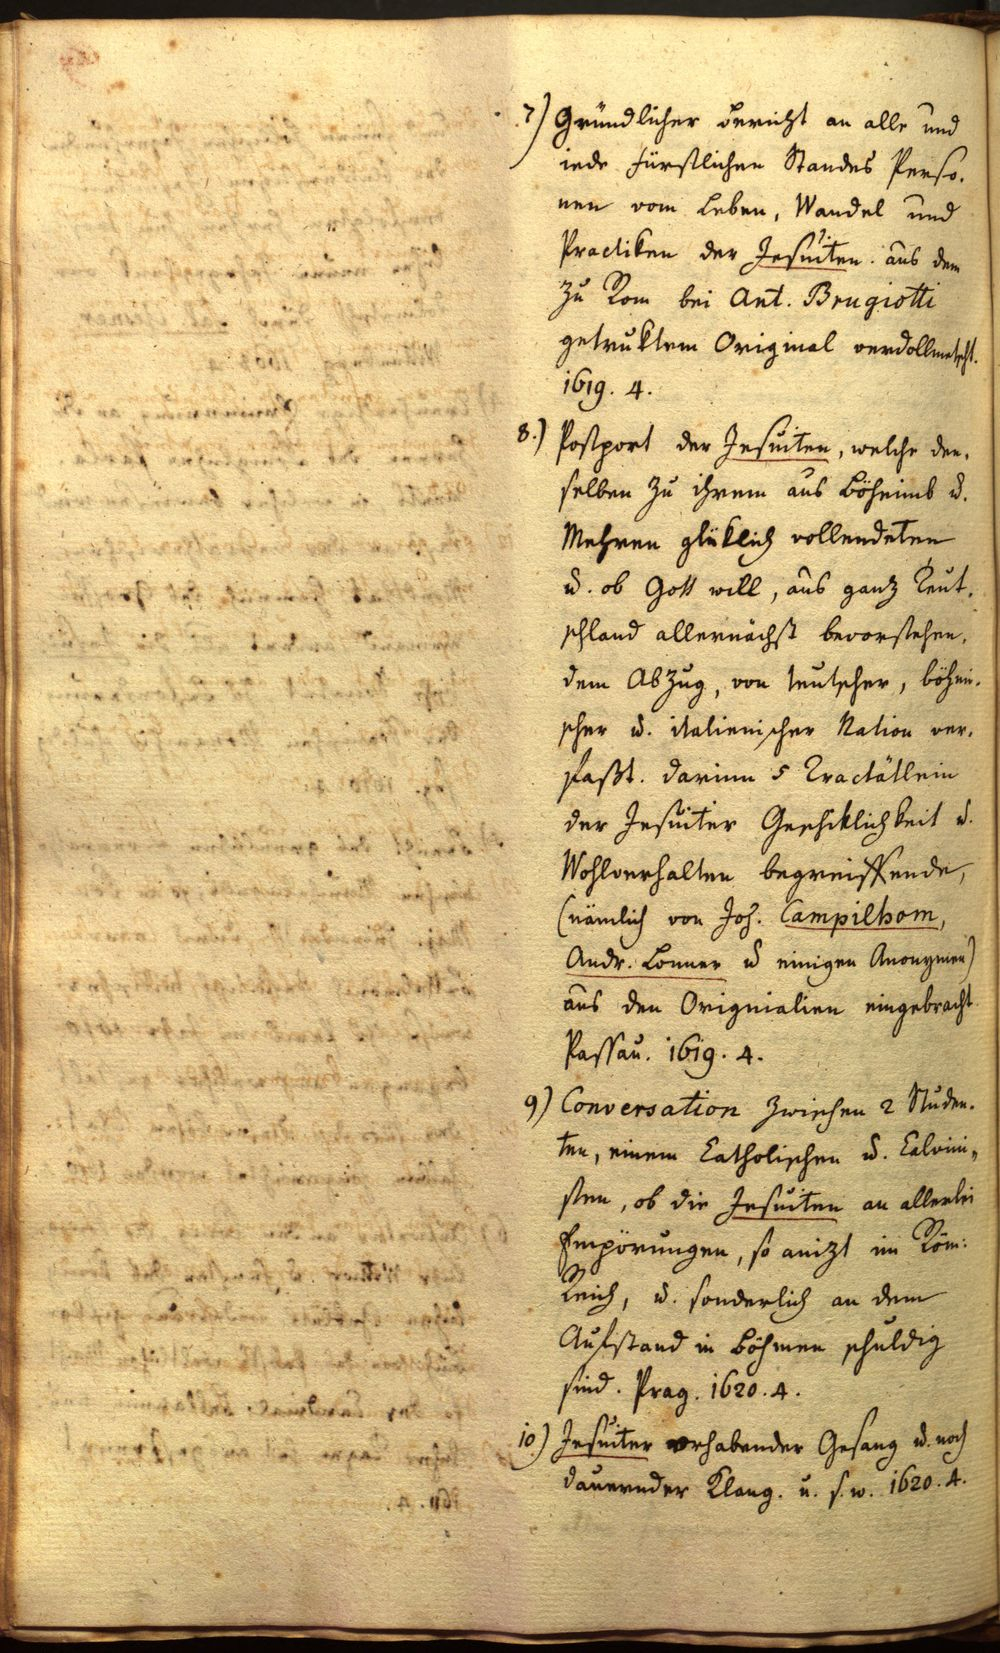 7) Gründlicher Bericht an alle und
iede Fürstlichen Standes Perso-
nen vom Leben, Wandel und
Practiken der Jesuiten. aus dem
zu Rom bei Ant. Brugiotti
getruktem Original verdollmetscht.
1619. 4.
8.) Postport der Jesuiten, welche den-
selben zu ihrem aus Böheimb u.
Mehren glüklich vollendeten
u. ob Gott will, aus ganz Teut-
schland allernächst bevorstehen-
dem Abzug, von teutscher, böhmi-
scher u. italienischer Nation ver-
faßt. darinn 5 Tractätlein
der Jesuiter Geschiklichkeit u.
Wohlverhalten begreiffende,
(nämlich von Joh. Campilhom,
Andr. Lonner u einigen Anonymen)
aus den Orignialien eingebracht
Passau. 1619. 4.
9) Conversation zwischen 2 Studen-
ten, einem Catholischen u. Calvini-
sten, ob die Jesuiten an allerlei
Empörungen, so anizt im Röm:
Reich, u. sonderlich an dem
Aufstand in Böhmen schuldig
sind. Prag. 1620. 4.
10.) Jesuiter vorhabender Gesang u. noch
dauernder Klang. u. s. w. 1620. 4.